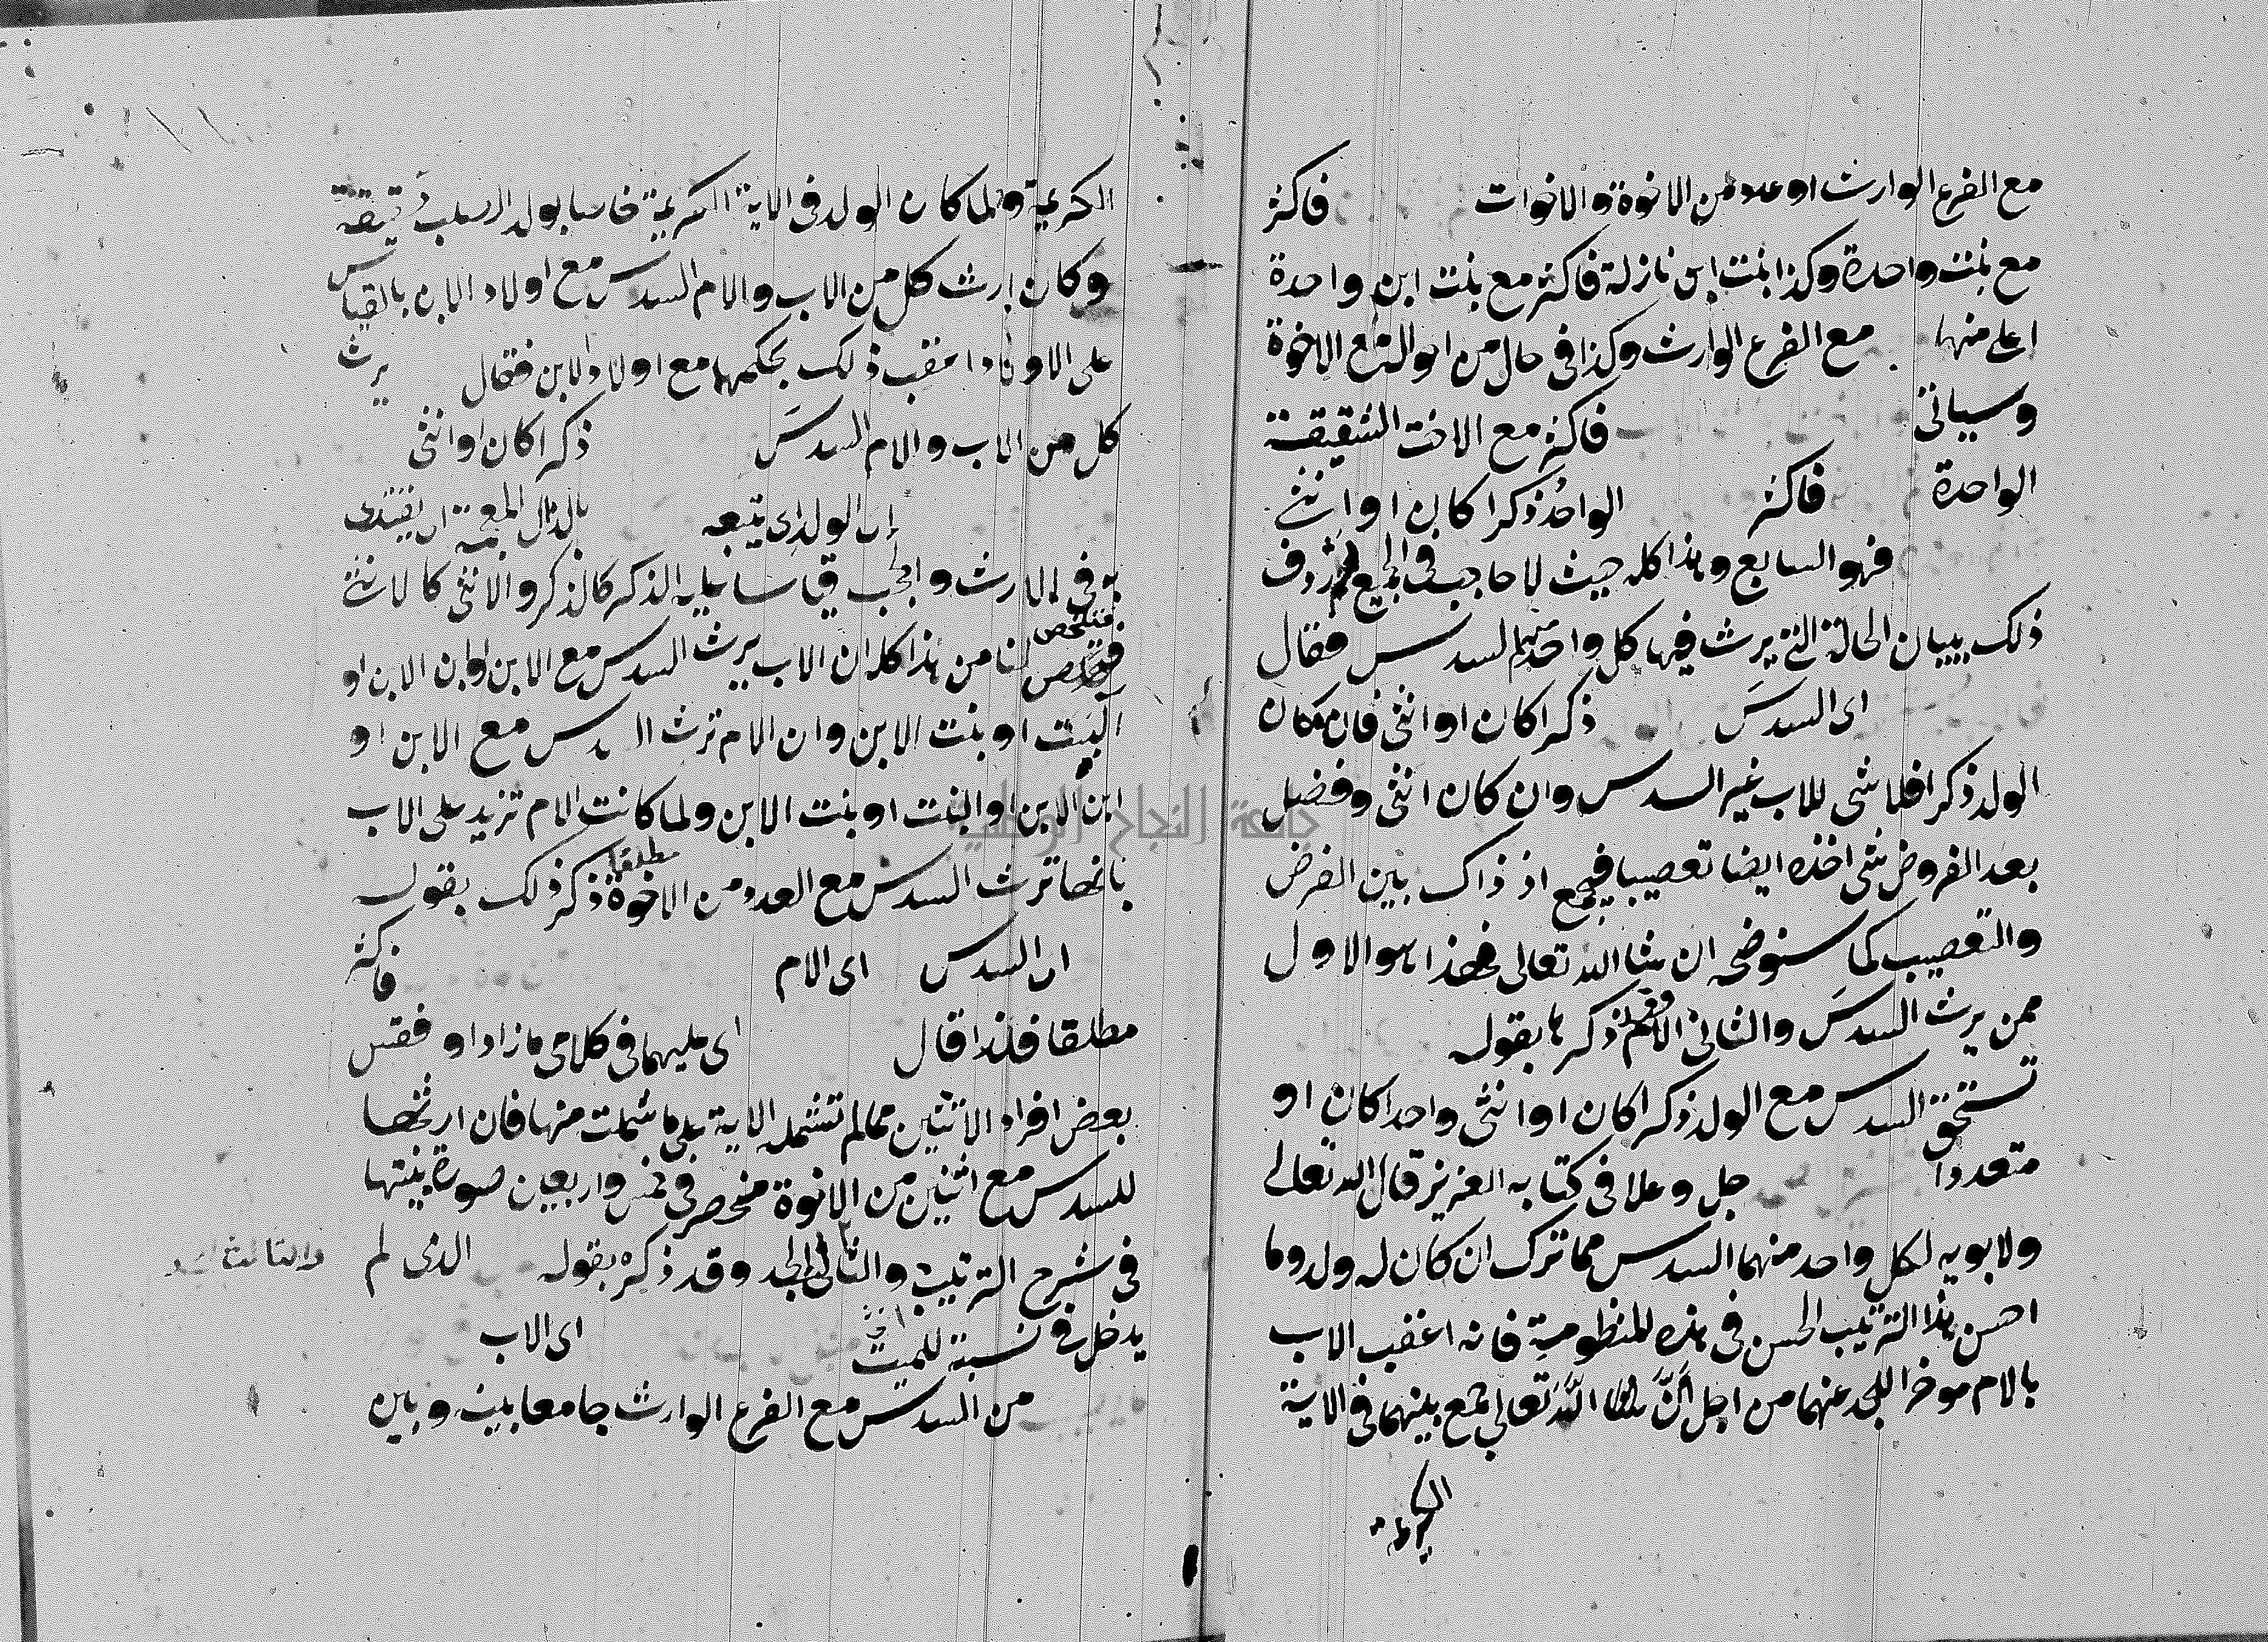 مع الفرع الوارث او عدد من الاخوة والاخوات فاكثر
مع بنت واحدة وكذا بنت ابن نازلة فاكثر مع بنت ابن واحدة
اعلى منها مع الفرع الوارث وكذا فى حال من احواله مع الاخوة
وسياتى فاكثر مع الاخت الشقيقة
الواحدة فاكثر الواحد ذكرا كان او انثى
فهو السابع وهذا كله حيث لا حاجب فى الجميع ثم اردف
ذلك ببيان الحالة التى يرث فيها كل واحد منهم السدس فقال
اى السدسَ ذكرا كان او انثى فان كان
الولد ذكرا فلا شى للاب غير السدس وان كان انثى وفضل
بعد الفروض شى اخذه ايضا تعصيبا فيجمع اذ ذاك بين الفرض
والتعصيب كما سنوضحه ان شا الله تعالى فهذا هو الاول
ممن يرث السدسَ والثانى الام وقد ذكرها بقوله
تستحق السدس مع الولد ذكرا كان او انثى واحدا كان او
متعددا جل وعلا فى كتابه العزيز قال الله تعالى
ولابويه لكل واحد منهما السدس مما ترك ان كان له ولد وما
احسن هذا الترتيب الحسن فى هذه المنظومة فانه اعقب الاب
بالام موخرا للجد عنهما من اجل انَّ اللهَ تعالى جمع بينهما فى الاية
الكريمة
الكريمة ولما كان الولد فى الاية الكريمة خاصا بولد الصلب حقيقة
وكان ارث كل من الاب والام السدس مع اولاد الابن بالقياس
على الاولاد اعقب ذلك بحكمهما مع اولاد الابن فقال يرث
كل من الاب والام السدسَ ذكرا كان او انثى
اى الولد اى يتبعه بالذال المعجمة اى يقتدى
به فى الارث والحجب قياسا عليه الذكر كالذكر والانثى كالانثى
فتلخص
لنا من هذا كله ان الاب يرث السدس مع الابن او ابن الابن او
البنت او بنت الابن وان الام ترث السدس مع الابن او
ابن الابن او البنت او بنت الابن ولما كانت الام تزيد على الاب
بانها ترث السدس مع العدد من الاخوة مطلقا ذكر ذلك بقوله
اى السدس اى الام فاكثر
مطلقا فلذا قال اى عليهما فى كلامى ما زاد او فقس
بعض افراد الاثنين مما لم تشمله الاية على ما شملت منها فان ارثها
للسدس مع اثنين من الاخوة منحصر فى خمس واربعين صورة بينتها
فى شرح الترتيب والثالث الجد وقد ذكره بقوله الذى لم
والثالث الجد
يدخل فى نسبته للميت انثى اى الاب
من السدس مع الفرع الوارث جامعا بينه وبين